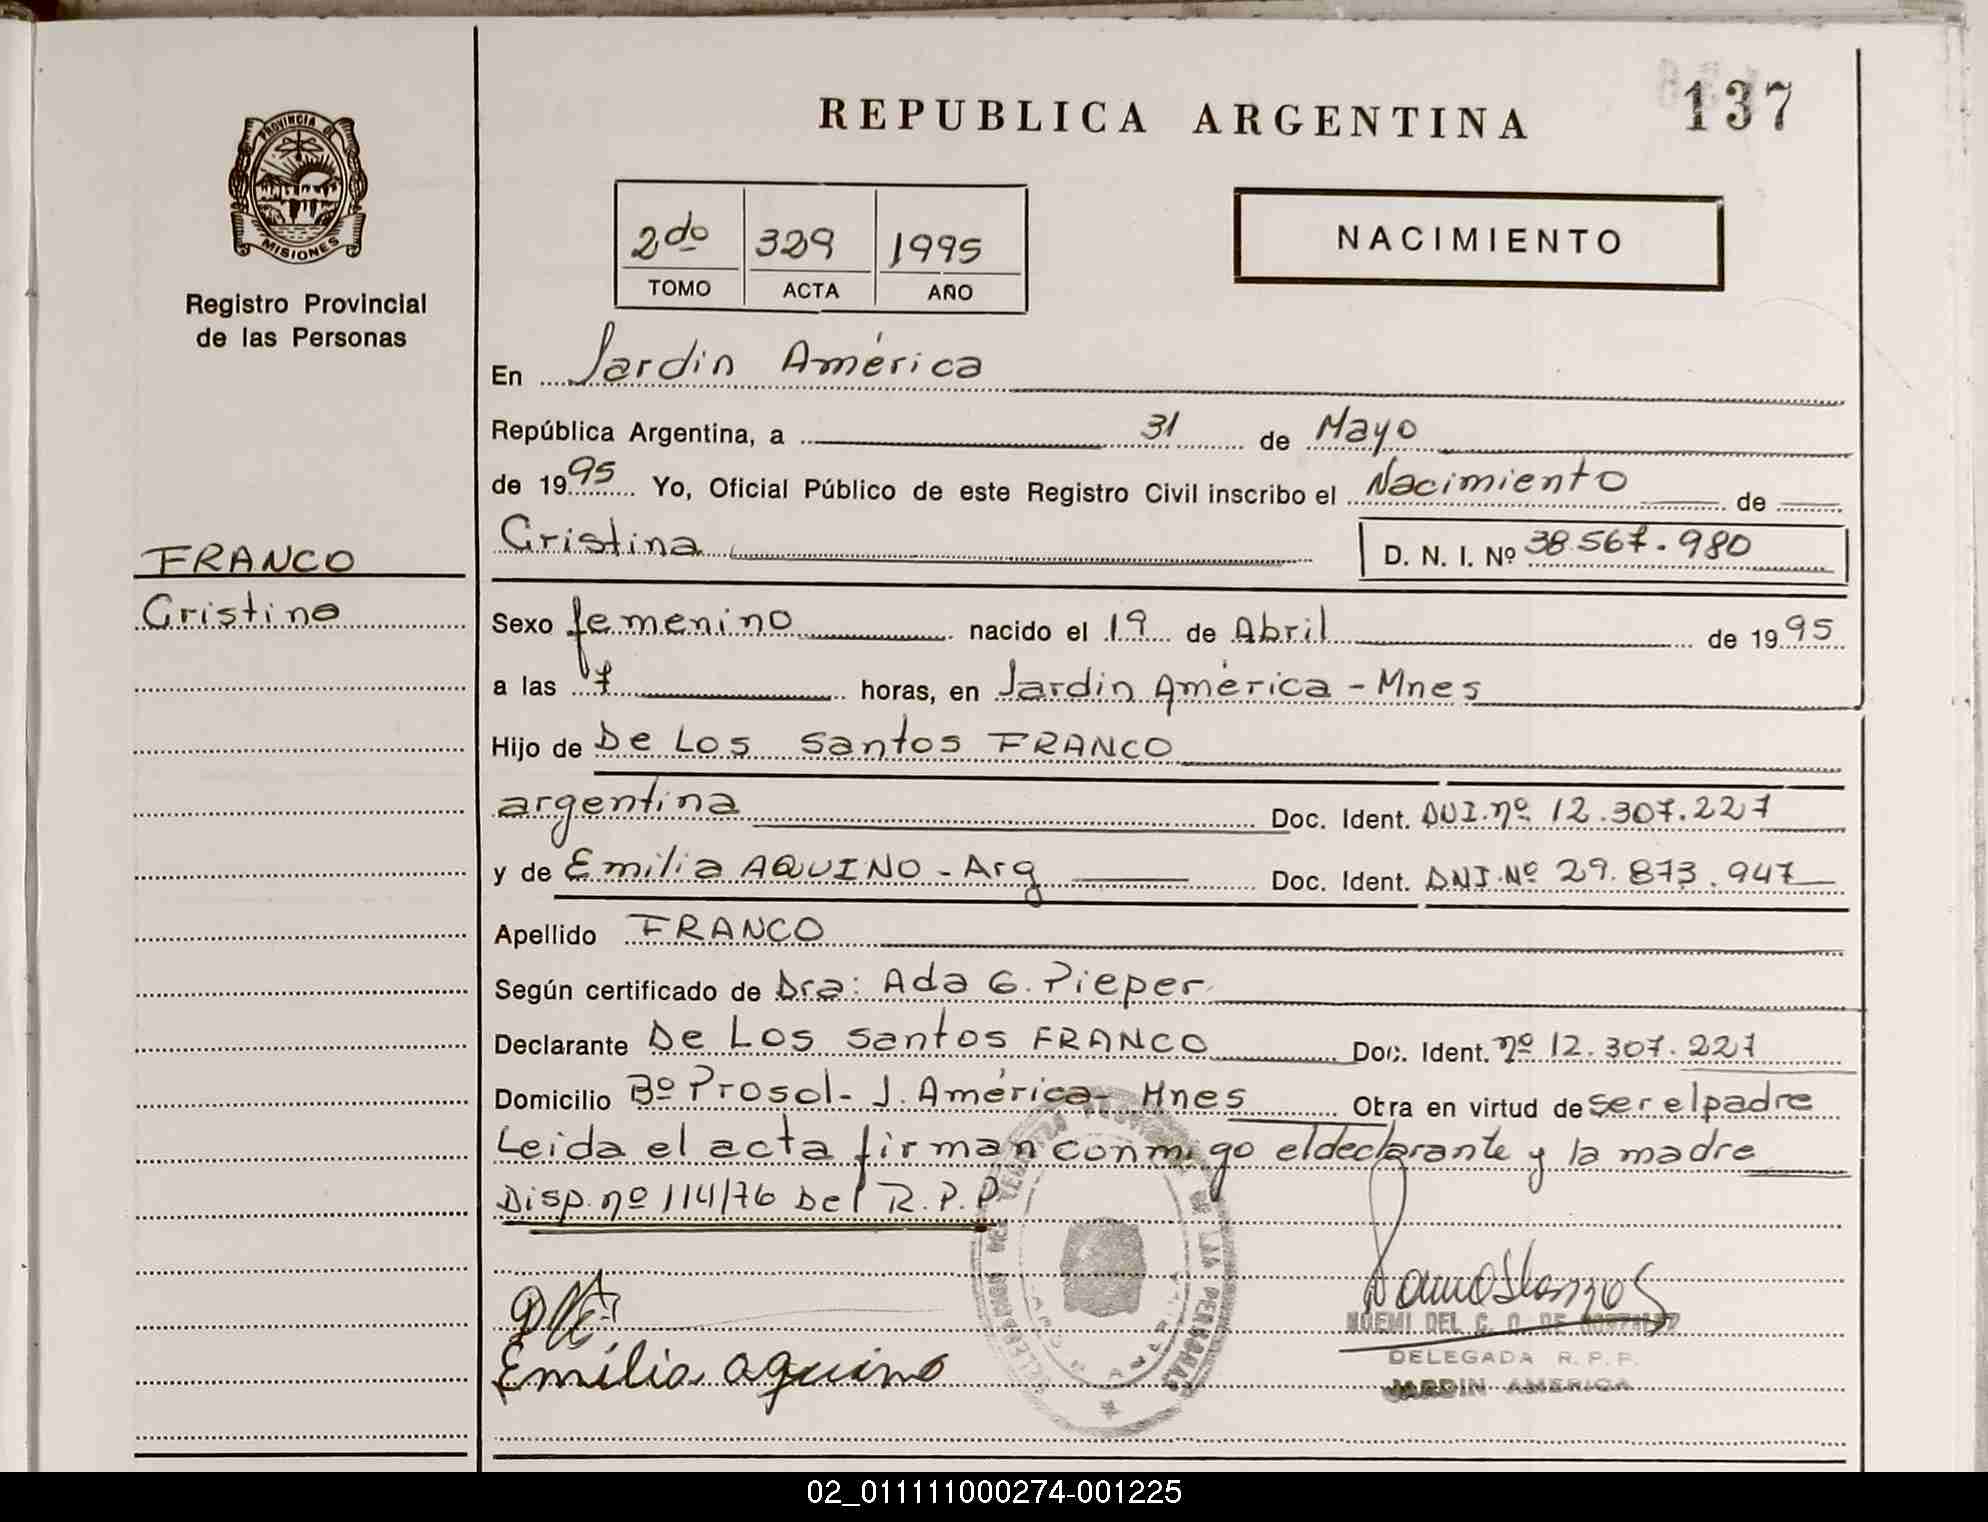 REPUBLICA ARGENTINA
137
PROVINCIA DE
MISIONES
Registro Provincial
de las Personas
2do 329 1995
TOMO ACTA AÑO
NACIMIENTO
En Jardin América
República Argentina, a 31 de Mayo
de 1995 Yo, Oficial Público de este Registro Civil inscribo el Nacimiento de
Cristina D. N. I. Nº 38.567.980
FRANCO
Cristina
Sexo femenino nacido el 19 de Abril de 1995
a las 7 horas, en Jardin América - Mnes
Hijo de De Los Santos FRANCO
argentina Doc. Ident. DNI.nº 12.307.227
y de Emilia AQUINO - Arg Doc. Ident. DNI.Nº 29.873.947
Apellido FRANCO
Según certificado de Dra: Ada G. Pieper
Declarante De Los Santos FRANCO Doc. Ident. nº 12.307.227
Domicilio Bº Prosol - J. América - Mnes Obra en virtud de ser el padre
Leida el acta firman conmigo el declarante y la madre
Disp. nº 114/76 Del R.P.P
Emilia aquino
NOEMI DEL C. O. DE
DELEGADA R. P. P.
JARDIN AMERICA
DE LAS PERSONAS
02_011111000274-001225